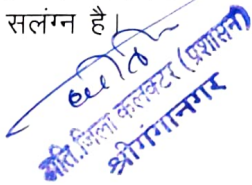 सलंग्न है।
अति.जिला कलक्टर (प्रशासन)
श्रीगंगानगर